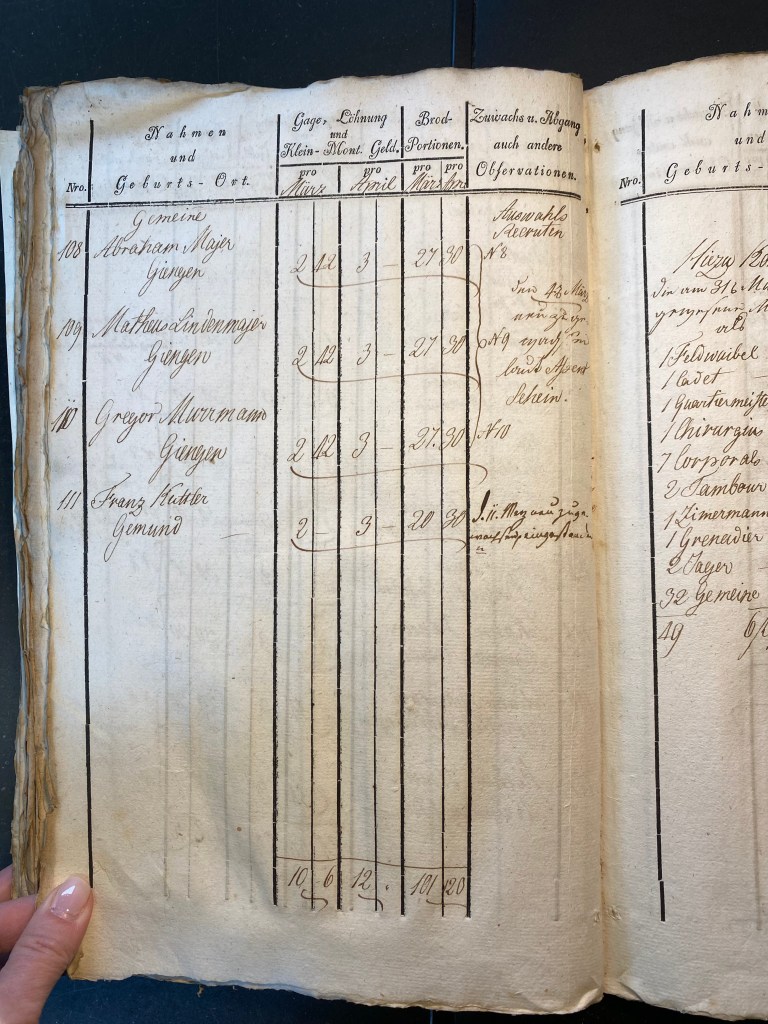 Nro.
Nahmen
und
Geburts-Ort.
Gage, Löhnung
und
Klein-Mont. Geld.
pro März
pro April
Brod-
Portionen.
pro März
pro
Zuwachs u. Abgang
auch andere
Observationen.
Gemeine
Auswahls
Recruten
108 Abraham Majer
Giengen 2 42 3 – 27 30 N 8
109 Matheus Lindenmajer
Giengen 2 42 3 – 27 30 N 9
den März
laut
Schein.
110 Gregor Murrmann
Giengen 2 42 3 – 27. 30 N 10
111 Franz Kuttler
Gemund – 2 – 3 – 20 30
10 6 12 . 101 120
Nro.
Nahm
und
Geburts-
Hiezu
die am 31t
gewesene
als
1 Feldwaibel
1 Cadet
1 Quartiermeiste
1 Chirurgus
7 Corporals
2 Tambour
1 Zimermann
1 Grenadier
2 Jager
32 Gemeine
49